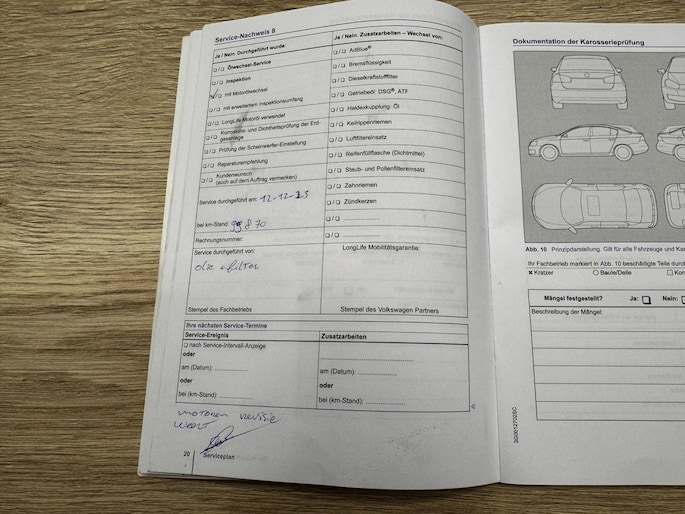 Service-Nachweis 8
Ja / Nein. Durchgeführt wurde:
❑ / ❑ Ölwechsel-Service
❑ / ❑ Inspektion
❑ / ❑ mit Motorölwechsel
❑ / ❑ mit erweitertem Inspektionsumfang
❑ / ❑ LongLife Motoröl verwendet
❑ / ❑ Korrosions- und Dichtheitsprüfung der Erdgasanlage
❑ / ❑ Prüfung der Scheinwerfer-Einstellung
❑ / ❑ Reparaturempfehlung
❑ / ❑ Kundenwunsch
(auch auf dem Auftrag vermerken)
Service durchgeführt am: 12-12-23
bei km-Stand: 99870
Rechnungsnummer:
Service durchgeführt von:
olie + filter
Stempel des Fachbetriebs
Ja / Nein. Zusatzarbeiten – Wechsel von:
❑ / ❑ AdBlue®
❑ / ❑ Bremsflüssigkeit
❑ / ❑ Dieselkraftstofffilter
❑ / ❑ Getriebeöl: DSG®, ATF
❑ / ❑ Haldexkupplung: Öl
❑ / ❑ Keilrippenriemen
❑ / ❑ Luftfiltereinsatz
❑ / ❑ Reifenfüllflasche (Dichtmittel)
❑ / ❑ Staub- und Pollenfiltereinsatz
❑ / ❑ Zahnriemen
❑ / ❑ Zündkerzen
❑ / ❑
❑ / ❑
LongLife Mobilitätsgarantie:
Stempel des Volkswagen Partners
Ihre nächsten Service-Termine
Service-Ereignis
❑ nach Service-Intervall-Anzeige
oder
am (Datum): ..............
oder
bei (km-Stand): ..............
Zusatzarbeiten
am (Datum): ..............
oder
bei (km-Stand): ..............
motoren revisie
Weert
20 Serviceplan
Dokumentation der Karosserieprüfung
Abb. 10 Prinzipdarstellung. Gilt für alle Fahrzeuge und
Ihr Fachbetrieb markiert in Abb. 10 beschädigte Teile
x Kratzer
O Beule/Delle
Mängel festgestellt? Ja: ❑ Nein:
Beschreibung der Mängel:
SG0012702SC